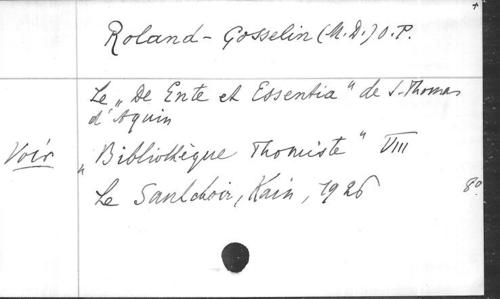 Roland-Gosselin (M.D.) O.P.
Le „De Ente et Essentia" de S. Thomas
d'Aquin
Voir „Bibliothèque Thomiste" VIII
Le Saulchoir, Kain, 1926 8º